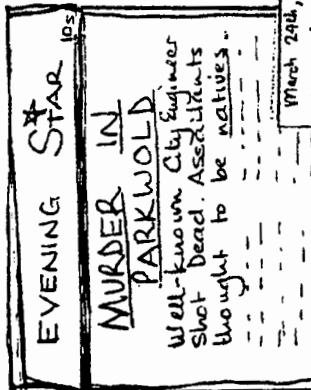 EVENING STAR 10s
MURDER IN
PARKWOLD
Well-known City Engineer
shot Dead. Assailants
thought to be natives.
March 24th,